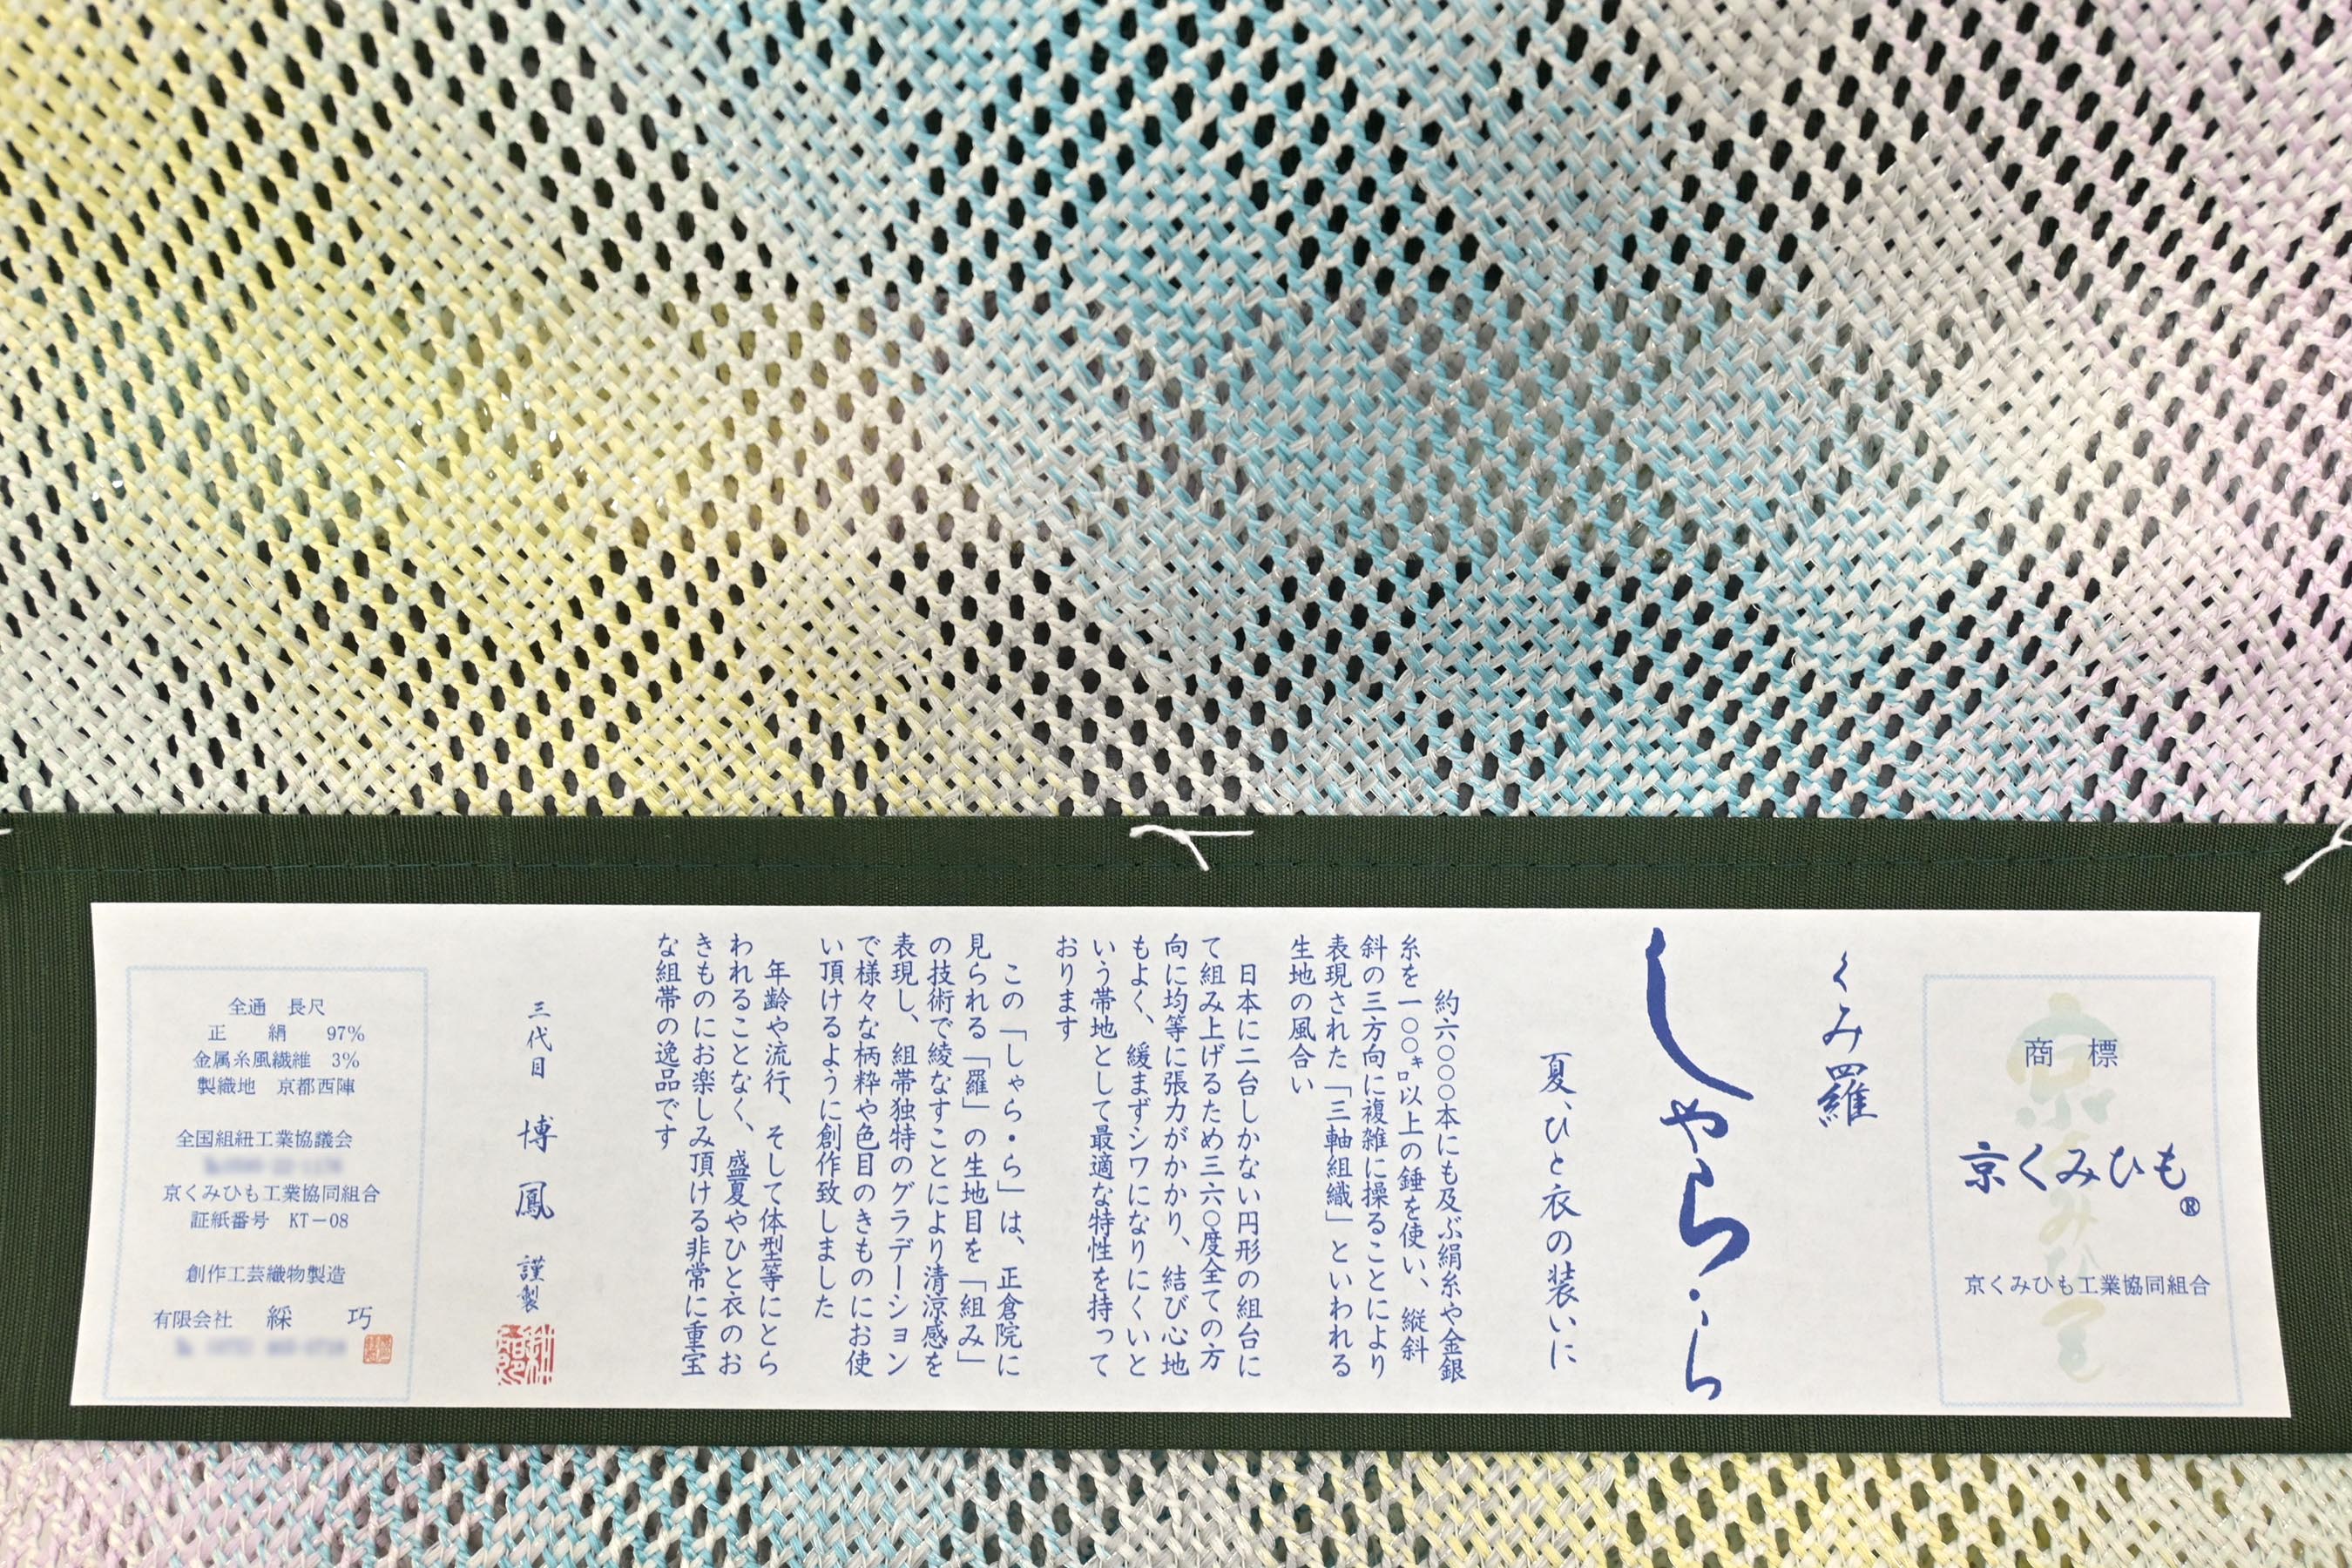 商標
京くみひも®
京くみひも工業協同組合
くみ羅
しゃら・ら
夏、ひと衣の装いに
約六〇〇〇本にも及ぶ絹糸や金銀
糸を一〇〇㌔以上の錘を使い、縦斜
斜の三方向に複雑に操ることにより
表現された「三軸組織」といわれる
生地の風合い
日本に二台しかない円形の組台に
て組み上げるため三六〇度全ての方
向に均等に張力がかかり、結び心地
もよく、緩まずシワになりにくいと
いう帯地として最適な特性を持って
おります
この「しゃら・ら」は、正倉院に
見られる「羅」の生地目を「組み」
の技術で綾なすことにより清涼感を
表現し、組帯独特のグラデーション
で様々な柄粋や色目のきものにお使
い頂けるように創作致しました
年齢や流行、そして体型等にとら
われることなく、盛夏やひと衣のお
きものにお楽しみ頂ける非常に重宝
な組帯の逸品です
三代目 博鳳 謹製
全通 長尺
正絹 97%
金属糸風繊維 3%
製織地 京都西陣
全国組紐工業協議会
京くみひも工業協同組合
証紙番号 KT-08
創作工芸織物製造
有限会社 綵巧